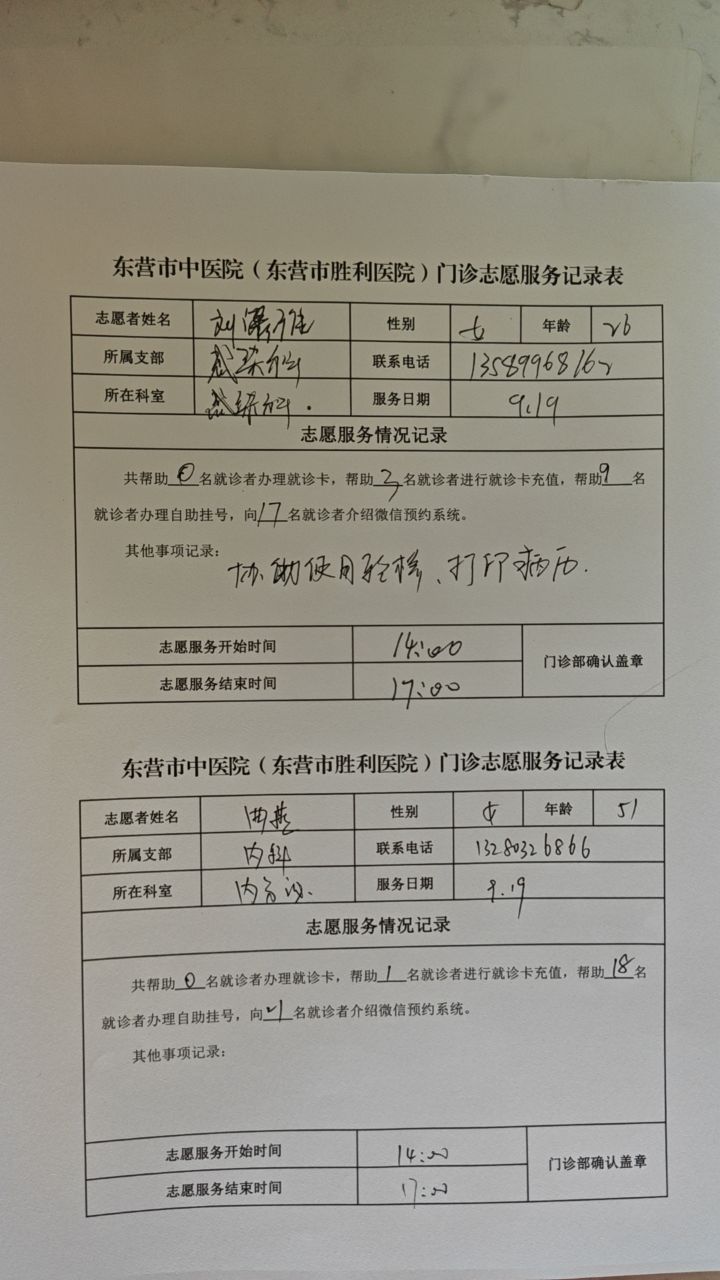 东营市中医院（东营市胜利医院）门诊志愿服务记录表
志愿者姓名 刘 性别 女 年龄 26
所属支部 感染科 联系电话 13589968162
所在科室 感染科. 服务日期 9.19
志愿服务情况记录
共帮助0名就诊者办理就诊卡，帮助3名就诊者进行就诊卡充值，帮助9名
就诊者办理自助挂号，向17名就诊者介绍微信预约系统。
其他事项记录：
协助使用 、打印病历.
志愿服务开始时间 14:00 门诊部确认盖章
志愿服务结束时间 17:00
东营市中医院（东营市胜利医院）门诊志愿服务记录表
志愿者姓名 曲燕 性别 女 年龄 51
所属支部 内科 联系电话 13280326866
所在科室 内分泌. 服务日期 9.19
志愿服务情况记录
共帮助0名就诊者办理就诊卡，帮助1名就诊者进行就诊卡充值，帮助18名
就诊者办理自助挂号，向21名就诊者介绍微信预约系统。
其他事项记录：
志愿服务开始时间 14:00 门诊部确认盖章
志愿服务结束时间 17:00